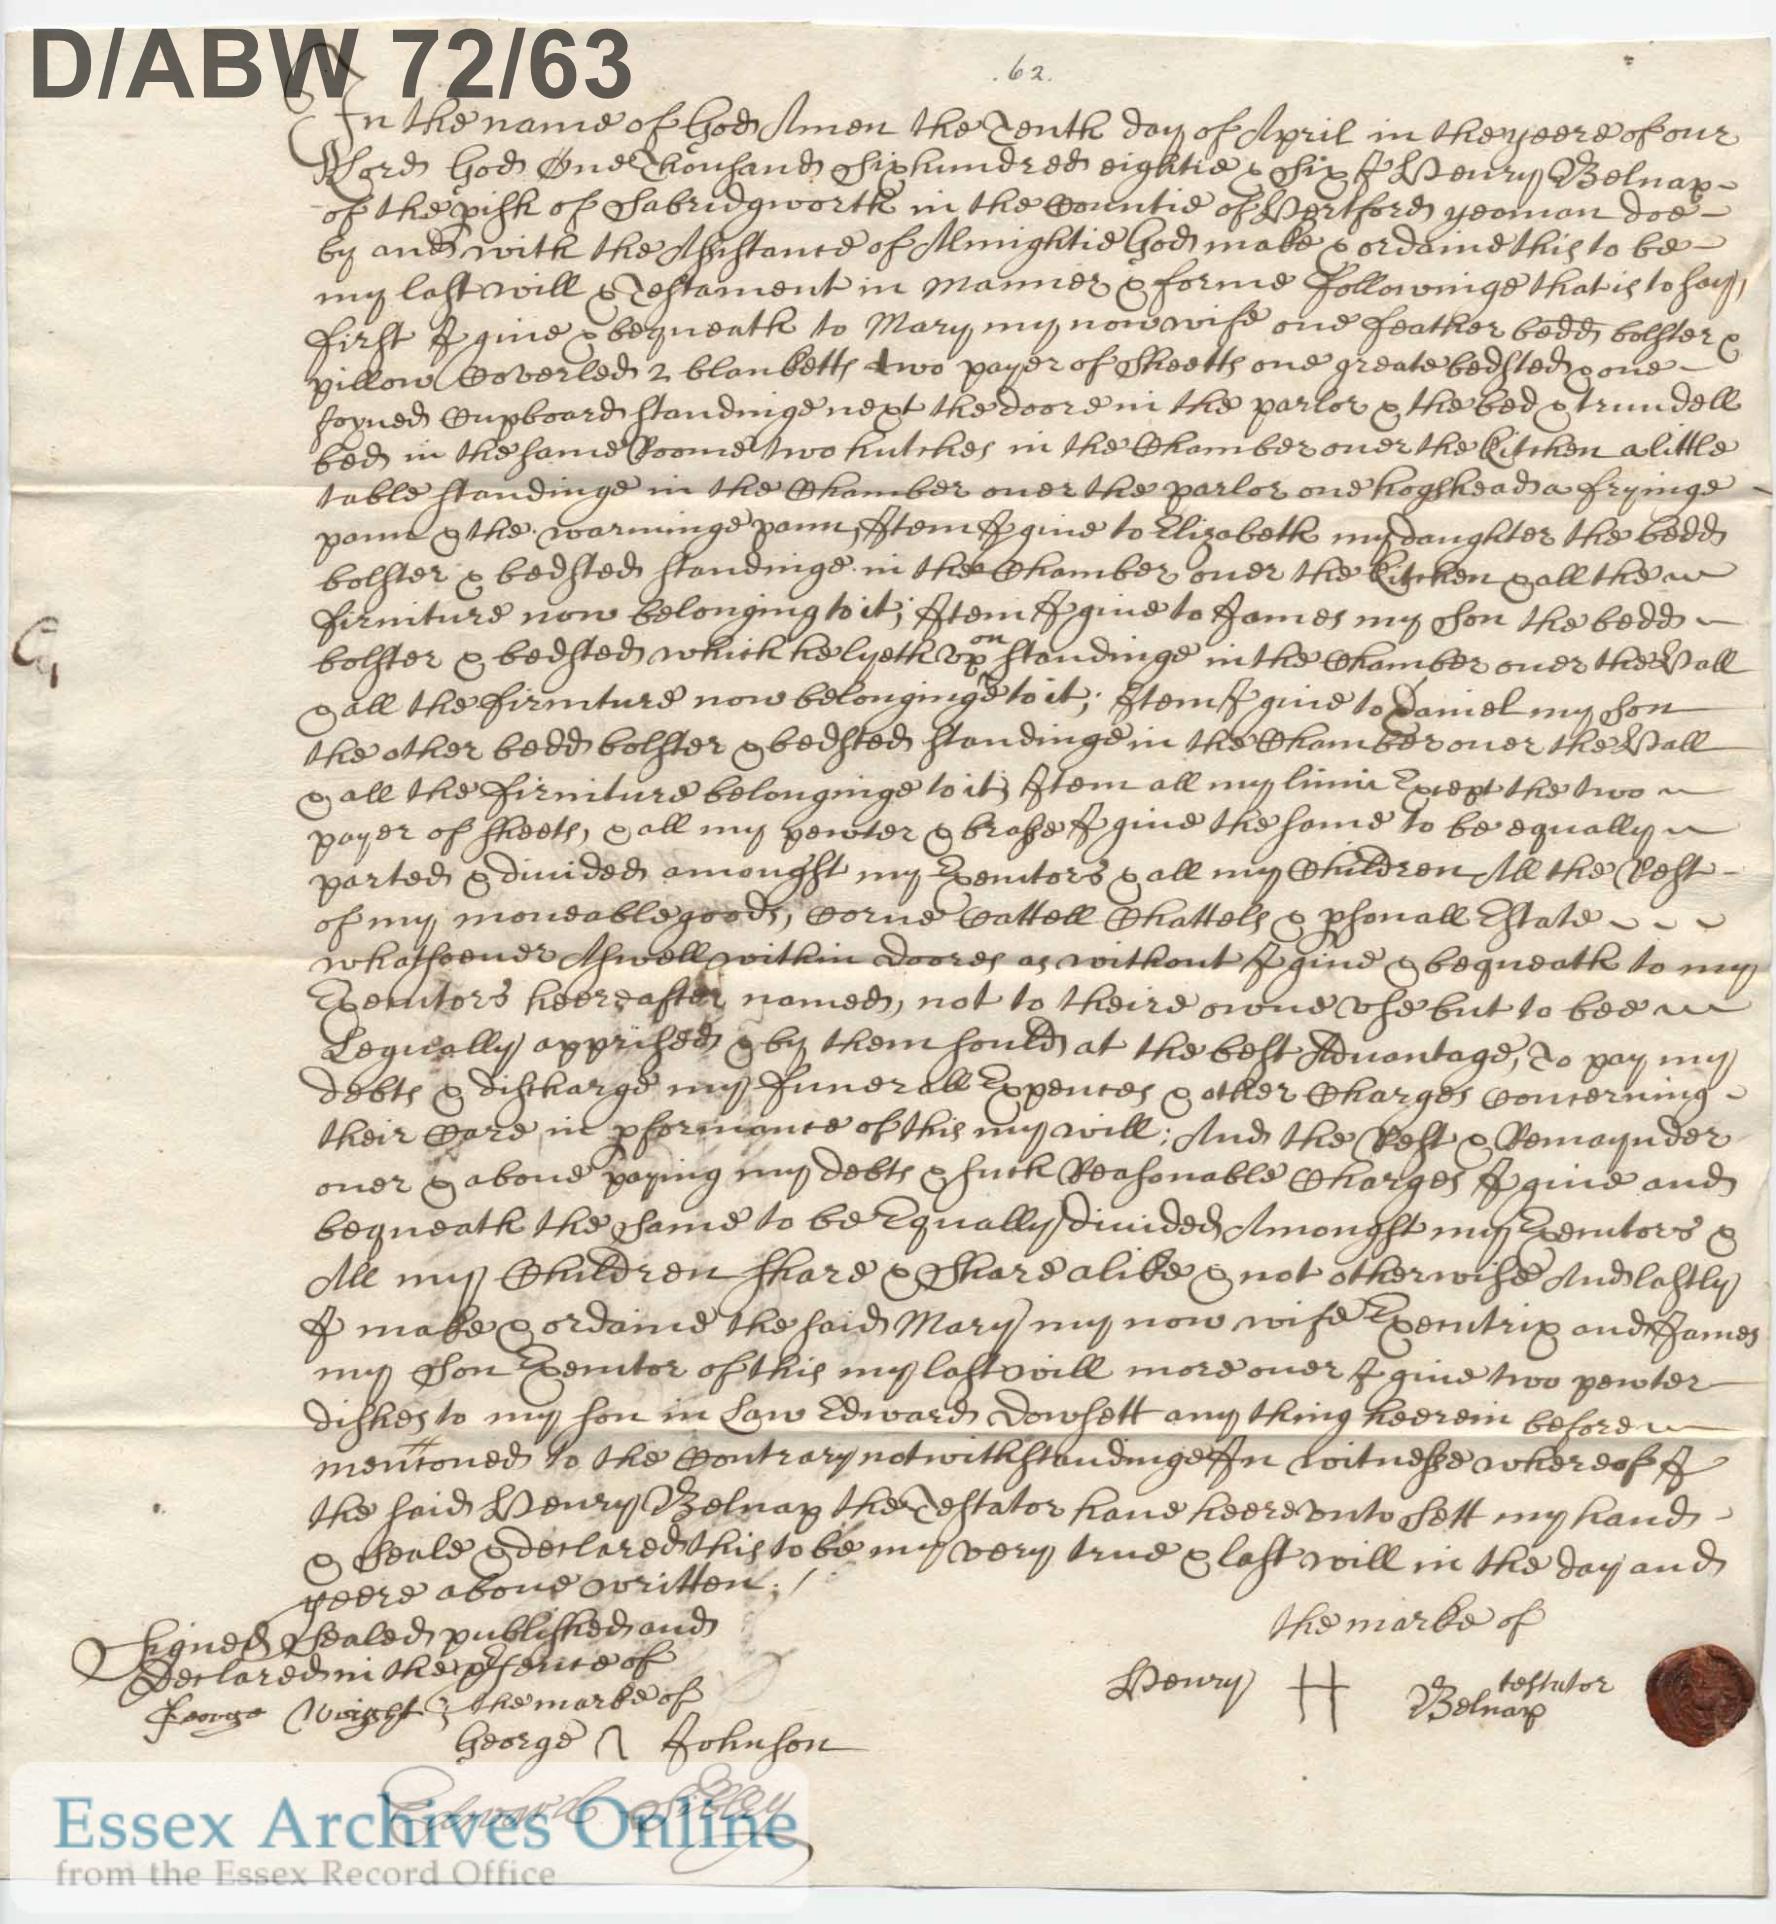 D/ABW 72/63
.62.
In the name of God Amen the Tenth day of Aprill in the yeere of our
Lord God One Thousand Six hundred eightie & Six I Henry Belnap
of the pish of Sabridgworth in the Countie of Hertford yeoman doe
by and with the Assistance of Almightie God make & ordaine this to be
my last will & Testament in manner & forme followinge that is to say,
first I giue & bequeath to Mary my now wife one feather bedd bolster &
pillow Coverled 2 blanketts two payer of Sheetts one greate bedsted & one
Joyned Cupboard standinge next the doore in the parlor & the bed & trundell
bed in the same Roome two hutches in the Chamber ouer the Kitchen a little
table standinge in the Chamber ouer the parlor one hogshead a fryinge
pann & the warminge pann, Item I giue to Elizabeth my daughter the bedd
bolster & bedsted standinge in the Chamber ouer the Kitchen & all the
firniture now belonging to it; Item I giue to James my Son the bedd
bolster & bedsted which he lyeth vpon standinge in the Chamber ouer the Hall
& all the firniture now belonginge to it; Item I giue to Daniel my Son
the other bedd bolster & bedsted standinge in the Chamber ouer the Hall
& all the firniture belonginge to it; Item all my linin Except the two
payer of sheets, & all my pewter & brasse I giue the same to be equally
parted & diuided amonghst my Executors & all my Children All the Rest
of my moueable goods, Corne Cattell Chattels & psonall Estate
whatsoeuer Aswell within doores as without I giue & bequeath to my
Executors heereafter named, not to theire owne vse but to bee
Legually apprised & by them sould at the best Aduantage, To pay my
debts & discharge my funerall Expences & other Charges Concerning
their Care in pformance of this my will; And the Rest & Remaynder
ouer & aboue paying my debts & such Reasonable Charges I giue and
bequeath the same to be Equally diuided Amonghst my Executors &
All my Children share & Share alike & not otherwise And lastly
I make & ordaine the said Mary my now wife Executrix and James
my Son Executor of this my last will more ouer I giue two pewter
dishes to my son in Law Edward Dowsett any thing heerein before
mentioned to the Contrary notwithstandinge In witnesse whereof I
the said Henry Belnap the Testator haue heere vnto Sett my hand
& Seale & declared this to be my very true & last will in the day and
yeere aboue written:/
Signed Sealed published and
Declared in the psence of
George Wright; the marke of
George Johnson
Edward Sibley
the marke of
Henry H Belnap
testator
Essex Archives Online
from the Essex Record Office